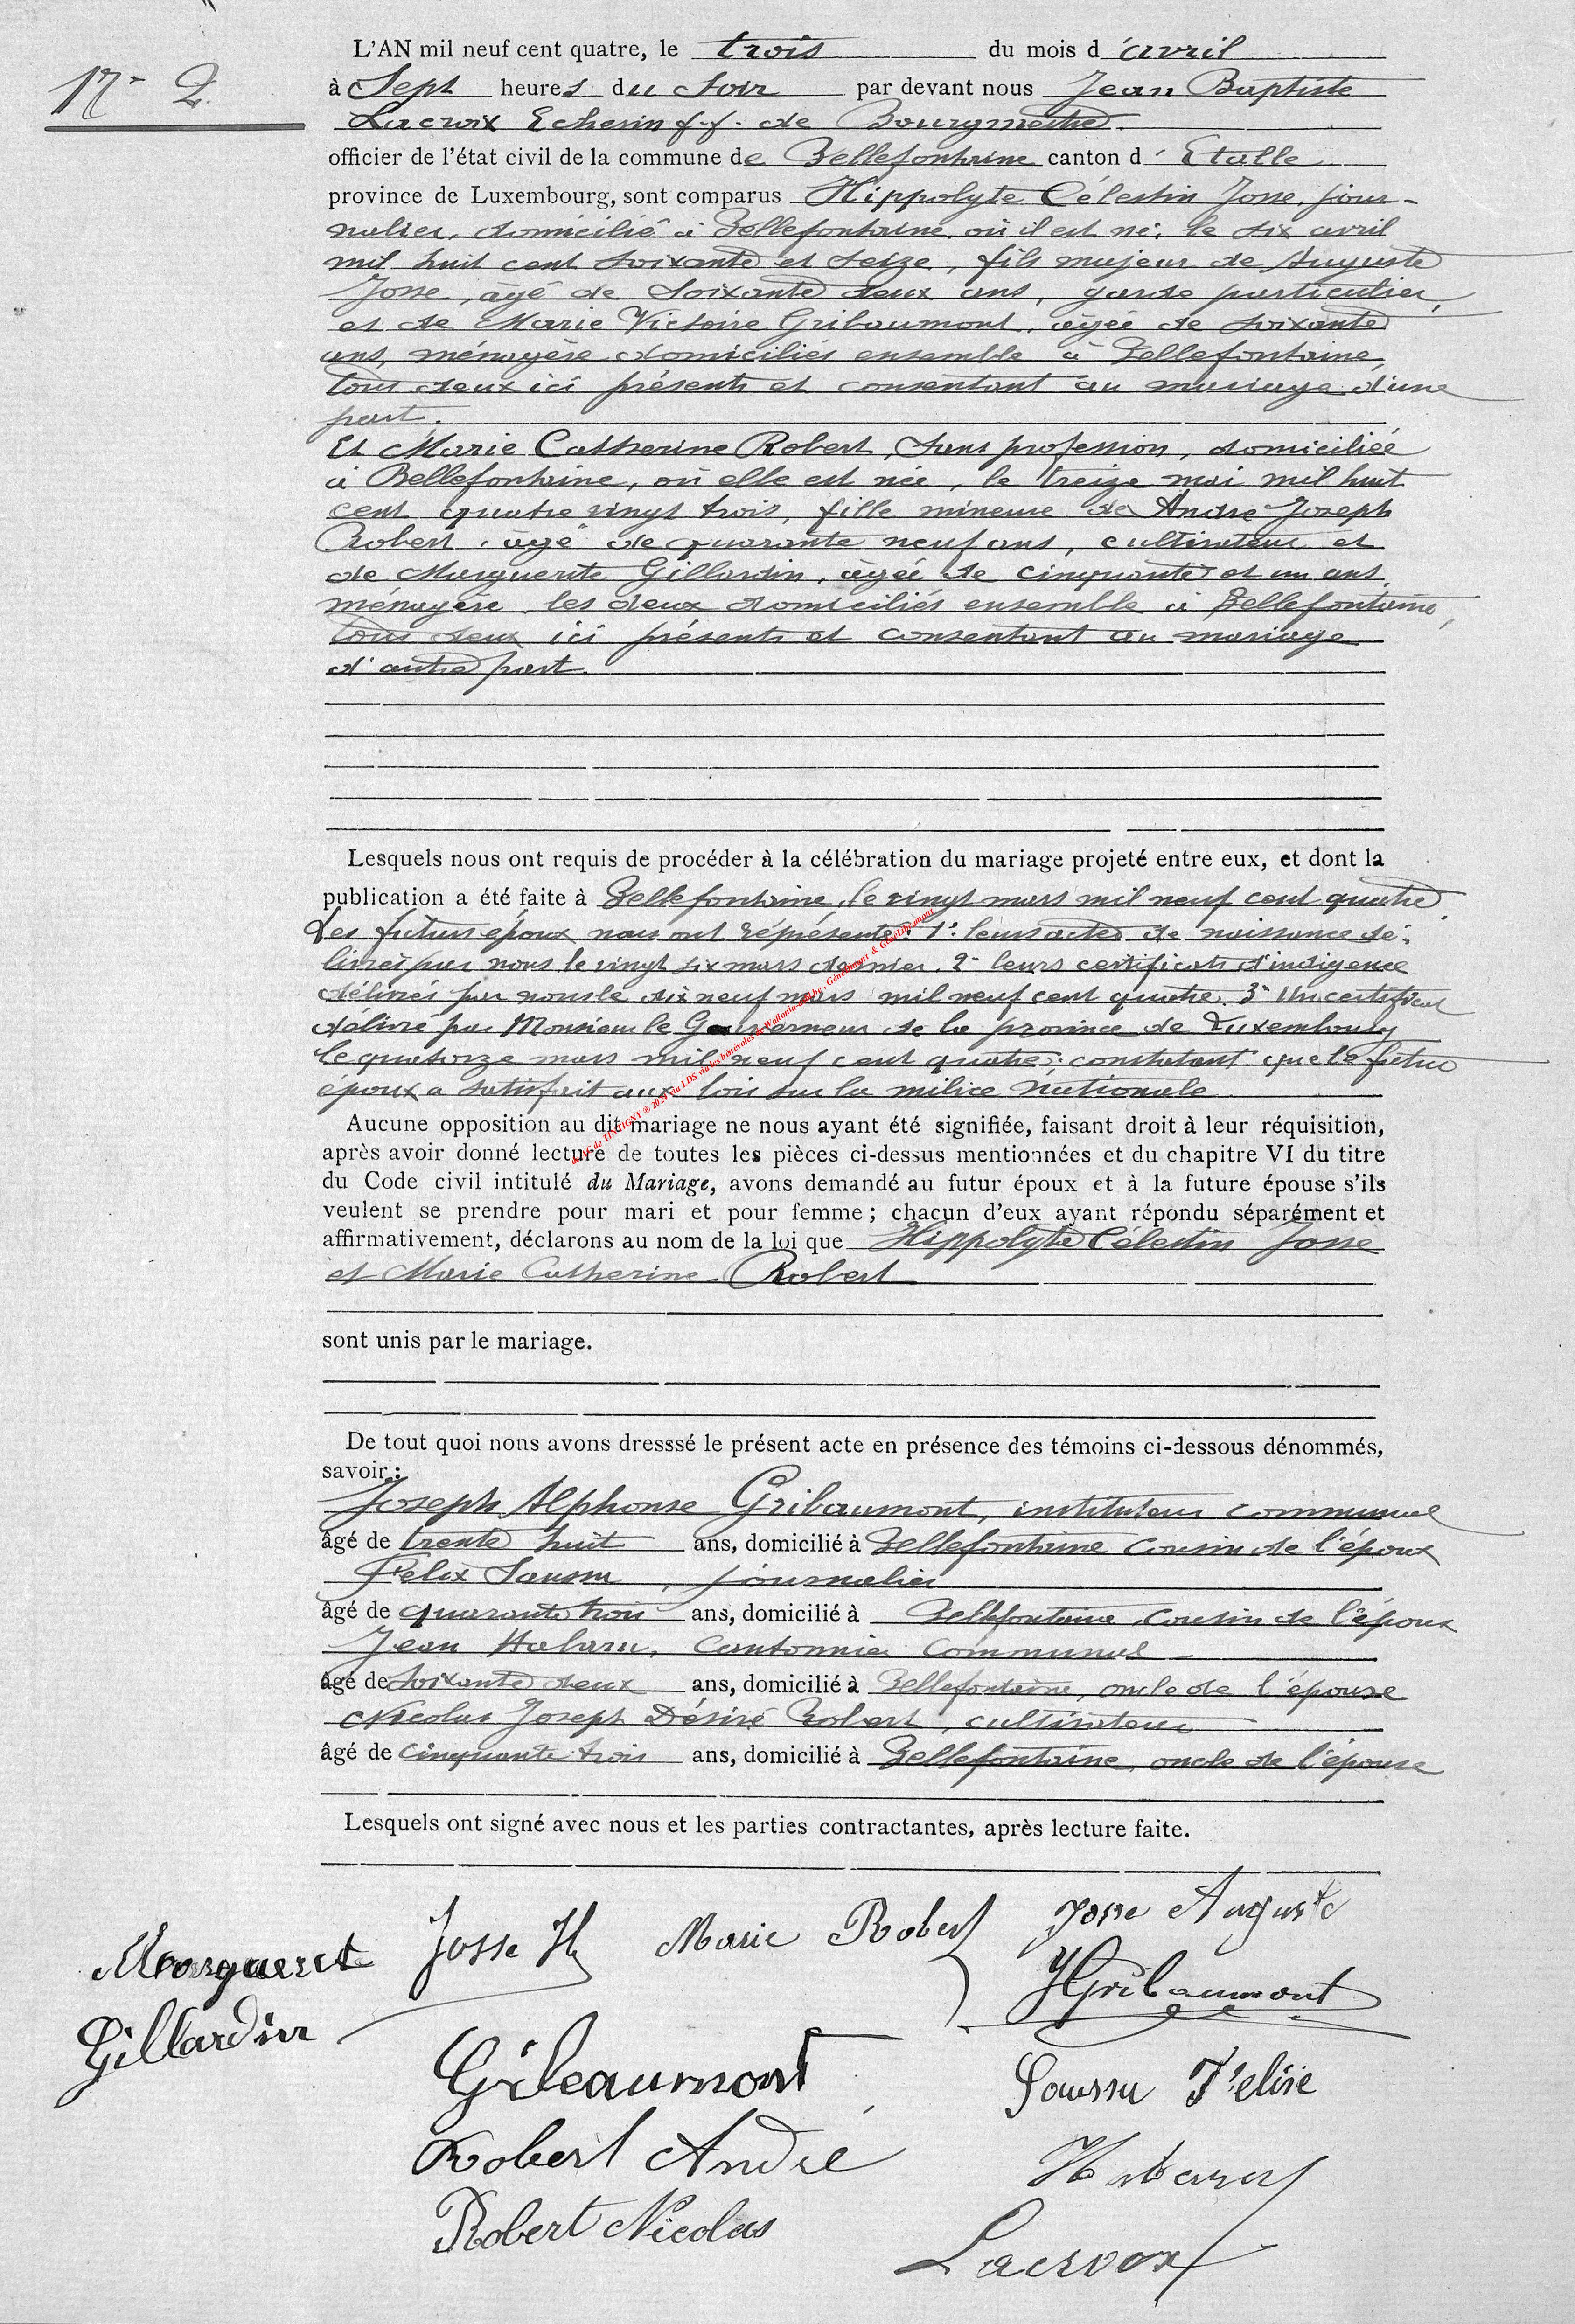 N° 2.
L'AN mil neuf cent quatre, le trois du mois d'avril
à Sept heures du soir par devant nous Jean Baptiste
Lacroix Echevin f.f. de Bourgmestre.
officier de l'état civil de la commune de Bellefontaine canton d'Etalle
province de Luxembourg, sont comparus Hippolyte Célestin Josse, jour-
nalier, domicilié à Bellefontaine, où il est né, le six avril
mil huit cent soixante et seize, fils majeur de Auguste
Josse, âgé de soixante deux ans, garde particulier,
et de Marie Victoire Gribaumont, âgée de soixante
ans, ménagère domiciliés ensemble à Bellefontaine,
tous deux ici présents et consentant au mariage d'une
part.
Et Marie Catherine Robert, sans profession, domiciliée
à Bellefontaine, où elle est née, le treize mai mil huit
cent quatre vingt trois, fille mineure de André Joseph
Robert, âgé de quarante neuf ans, cultivateur et
de Marguerite Gillardin, âgée de cinquante et un ans,
ménagère, les deux domiciliés ensemble à Bellefontaine,
tous deux ici présents et consentant au mariage
d'autre part.
Lesquels nous ont requis de procéder à la célébration du mariage projeté entre eux, et dont la
publication a été faite à Bellefontaine, le vingt mars mil neuf cent quatre.
Les futurs époux nous ont représenté: 1° leurs actes de naissance dé-
livrés par nous le vingt six mars dernier, 2° leurs certificats d'indigence
délivrés par nous le dix neuf mars mil neuf cent quatre. 3° Un certificat
délivré par Monsieur le Gouverneur de la province de Luxembourg
le quatorze mars mil neuf cent quatre, constatant que le futur
époux a satisfait aux lois sur la milice nationale.
Aucune opposition au dit mariage ne nous ayant été signifiée, faisant droit à leur réquisition,
après avoir donné lecture de toutes les pièces ci-dessus mentionnées et du chapitre VI du titre
du Code civil intitulé du Mariage, avons demandé au futur époux et à la future épouse s'ils
veulent se prendre pour mari et pour femme ; chacun d'eux ayant répondu séparément et
affirmativement, déclarons au nom de la loi que Hippolyte Célestin Josse
et Marie Catherine Robert
sont unis par le mariage.
De tout quoi nons avons dresssé le présent acte en présence des témoins ci-dessous dénommés,
savoir :
Joseph Alphonse Gribaumont, instituteur communal
âgé de trente huit ans, domicilié à Bellefontaine cousin de l'époux
Félix Saussu, journalier
âgé de quarante trois ans, domicilié à Bellefontaine, cousin de l'époux
Jean Habaru, Cantonnier Communal
âgé de soixante deux ans, domicilié à Bellefontaine, oncle de l'épouse
Nicolas Joseph Désiré Robert, cultivateur
âgé de cinquante trois ans, domicilié à Bellefontaine, oncle de l'épouse
Lesquels ont signé avec nous et les parties contractantes, après lecture faite.
Josse H Marie Robert Josse Auguste
Margueret
Gillardin
Gribaumont
Gribeaumont
Saussu Felixe
Robert André
Habaru
Robert Nicolas
Lacroix